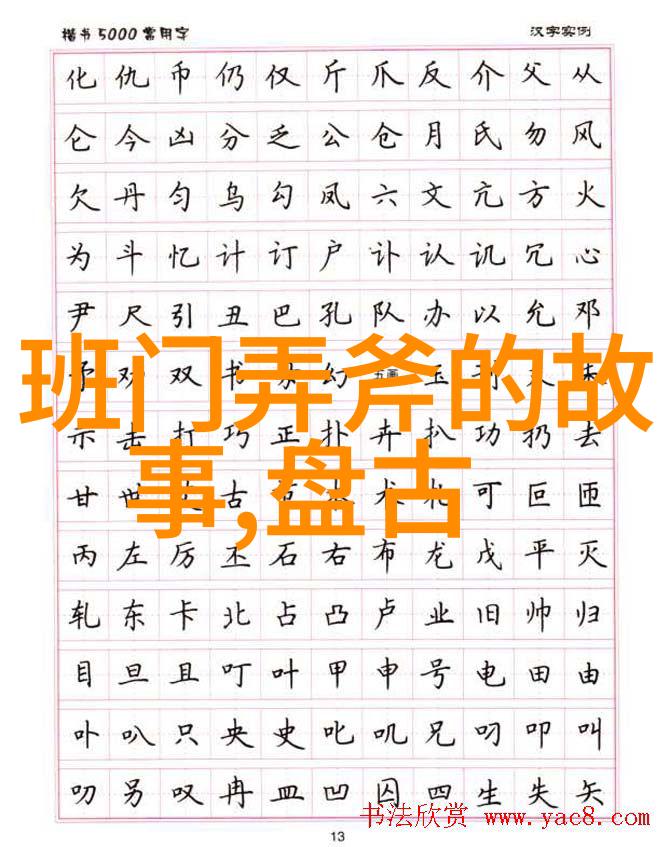 楷书5000常用字 汉字实例
化仇币仍仅斤爪反介父从
仑今凶分乏公仓月氏勿风
欠丹匀乌勾凤六文亢方火
为斗忆计订户讣认讥冗心
尹尺引丑巴孔队办以允邓
予劝双书幻五画玉刊末
班门弄斧的故
示击打巧正扑卉扒功扔去
甘世古术札可叵匝
事,盘古
丙左厉丕石右布龙戊平灭
轧东卡北占凸卢业旧帅归
目旦且叮叶甲申号电田由
卟叭只央史叱叽兄叼叩叫
叻另叹冉皿凹囚四生失矢
书法欣赏 www.yac8.com
13